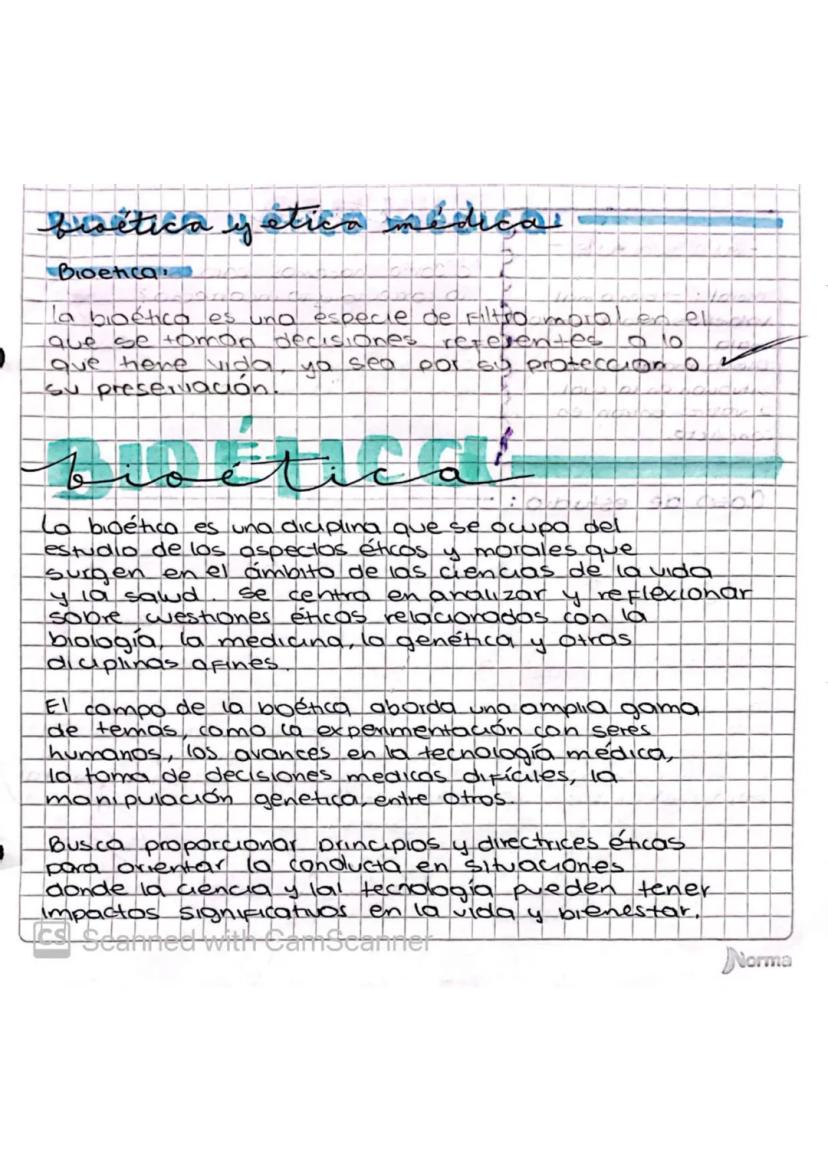 bioética y ética médica:
Bioetica:
la bioética es una especie de filtro moral en el
que se toman decisiones referentes a lo
que tiene vida, ya sea por su protección o
su preservación.
BIOÉTICA
bioética
La bioética es una diciplina que se ocupa del
estudio de los aspectos éticos y morales que
surgen en el ámbito de las ciencias de la vida
y la salud. se centra en analizar y reflexionar
sobre cuestiones éticas relacionadas con la
biología, la medicina, la genética y otras
diciplinas afines.
El campo de la bioética aborda una amplia gama
de temas, como la experimentación con seres
humanos, los avances en la tecnología médica,
la toma de decisiones medicas difíciles, la
manipulación genetica, entre otros.
Busca proporcionar principios y directrices éticas
para orientar la conducta en situaciones
donde la ciencia y lal tecnología pueden tener
impactos significativos en la vida y bienestar.
CS Scanned with CamScanner
Norma